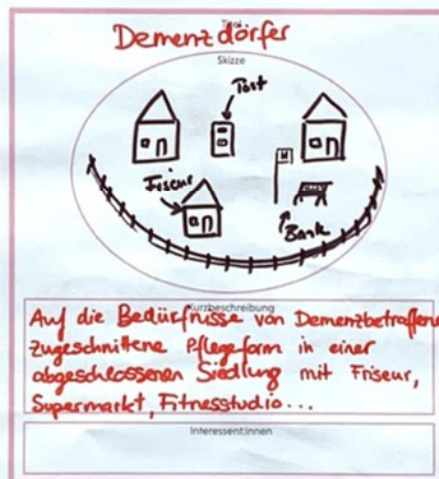 Titel
Demenzdörfer
Skizze
Post
H
Friseur
Bank
Kurzbeschreibung
Auf die Bedürfnisse von Demenzbetroffene
zugeschnittene Pflegeform in einer
abgeschlossenen Siedlung mit Friseur,
Supermarkt, Fitnesstudio...
Interessent:innen